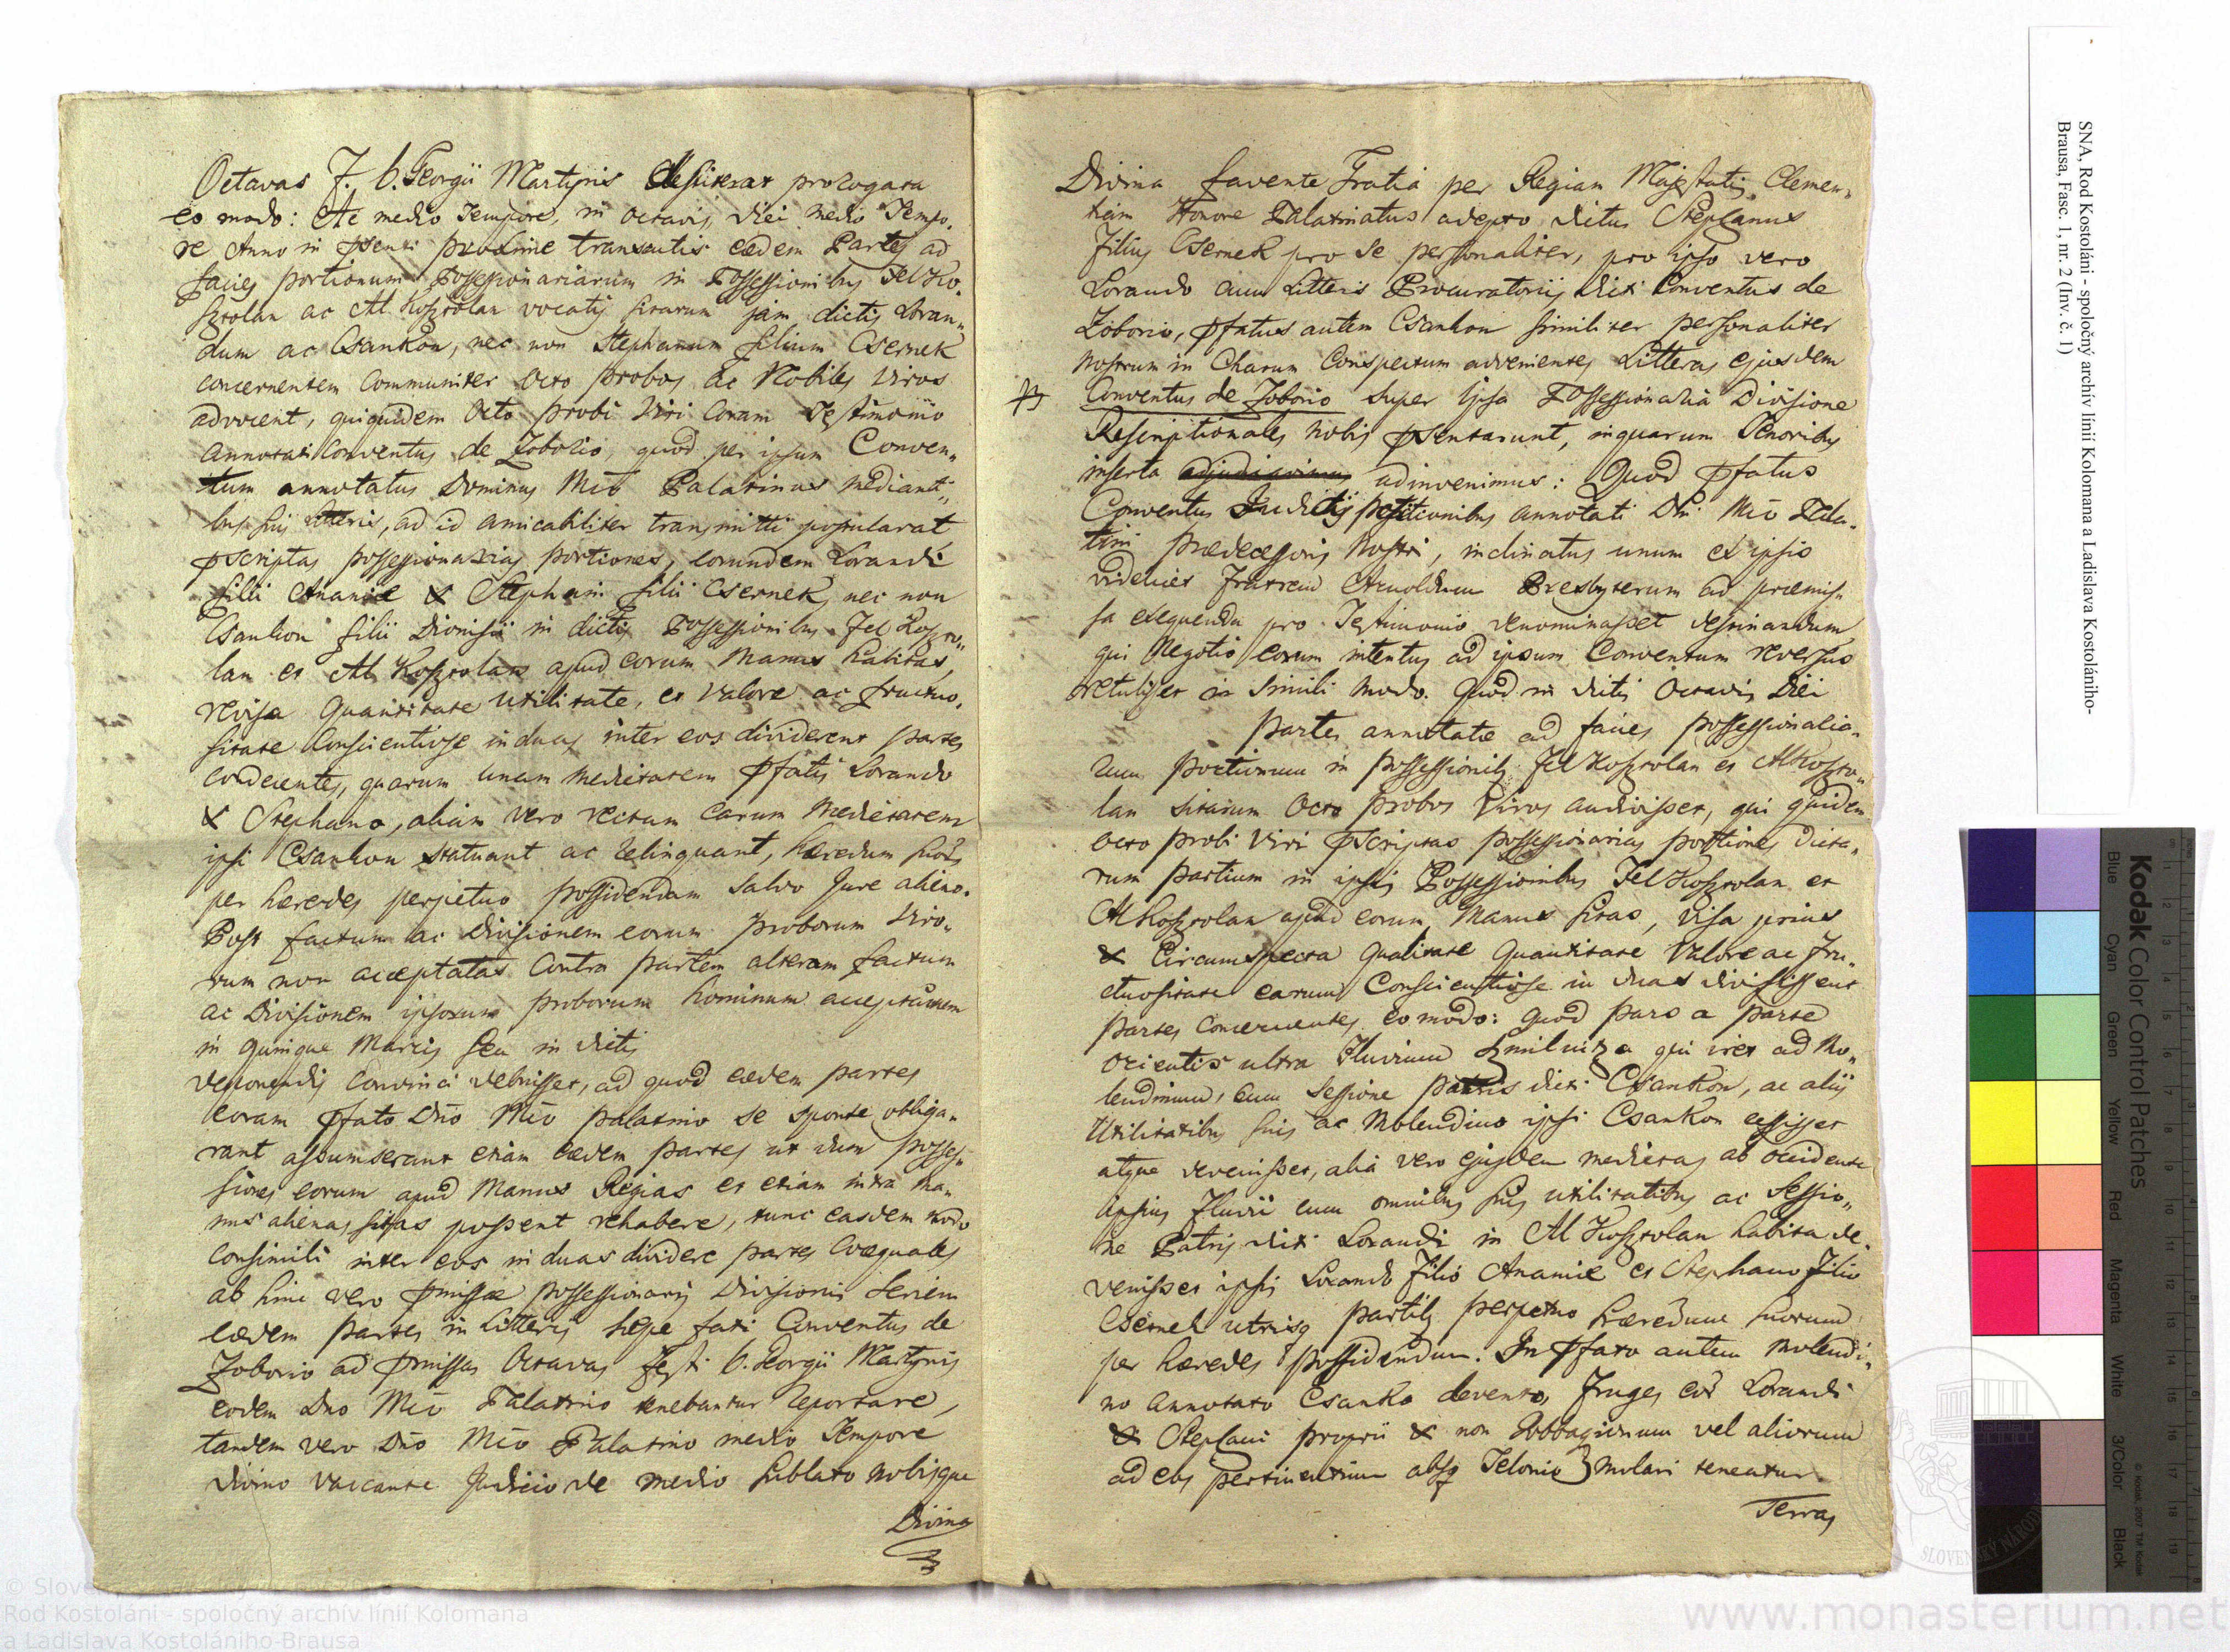 Octavas F. b. Georgii Martyris prorogata
eo modo: Ac medio Tempore, in octavis, diei medio Tempo,
re Anno in psenti proxime transactis eædem Partes ad
facies portionum Possessionariarum in Possessionibus Fel Ko,
sztolan ac Al Kosztolan vocatis sitarum jam dictis Loran„
dum ac Csankon, nec non Stephanum filium Csernek
concernentem Communiter Octo probos ac Nobiles Viros
advocent, qui quidem Octo probi Viri Coram Testimonio
annotati Conventus de Zoborio, quod per ipsum Conven„
tum annotatus Dominus Mīō Palatinus mediantī„
bus suis Litteris, ad id amicabiliter transmitti postularat
pscriptas possessionarias portiones, eorundem Lorandi
filii Ananiæ & Stephani filii Csernek, nec non
Csankon filii Dionisii in dictis Possessionibus Fel Koszto„
lan et Al Kosztolan apud eorum Manus habitas,
revisa quantitate utilitate, et valore ac fructuo,
sitate Conscientiose in duas inter eos dividerent partes
condecentes, quarum unam medietatem pfatis Lorando
& Stephano, aliam vero rectam earum Medietatem
ipsi Csankon statuant ac relinquant, hæredum suor̄
per hæredes perpetuo possidendam salvo Jure alieno.
Post factum ac Divisionem eorum proborum Viro„
rum non acceptatas Contra partem alteram factum
ac Divisionem ipsorum proborum hominum acceptantem
in quinque Marcis seu in dictis
deponendis Convinci debuisset, ad quod eædem partes
coram pfato Dn̄o Mīō palatino se sponte obliga„
rant assumserant etiam eædem partes ut dum posses„
siones eorum apud Manus Regias et etiam intra ma„
nus alienas sitas possent rehabere, tunc easdem modo
Consimili inter eos in duas dividere partes Coæquales
ab hinc vero pmissæ possessionariæ Divisionis seriem
eædem partes in Litteris sepe fati Conventus de
Zoborio ad pmissas Octavas Festi b. Georgii Martyris
eodem Dno Mīō Palatino tenebantur reportare,
tandem vero Dn̄o Mīō Palatino medio Tempore
divino vaccante Judicio de medio sublato nobisque
Divina
Divina favente Gratia per Regiam Majestatis Clemen„
tiam Honore Palatinatus adepto dictus Stephanus
Filius Csernek pro se personaliter, pro ipso vero
Lorando cum Litteris Procuratoriis dicti Conventus de
Zoborio, pfatus autem Csankon similiter personaliter
nostrum in Charum Conspectum advenientes Litteras ejusdem
Conventus de Zoborio super ipsa Possessionaria Divisione
Rescriptionales nobis psentarunt, in quarum Tenoribus
inserta adinvenimus: Quod pfatus
Conventus petitionibus annotati Dn̄i Mīō Pala„
tini prædecessoris Nostri, inclinatus unum ex ipsis
videlicet fratrem Arnoldum Presbyterum ad præmis„
sa exequenda pro Testimonio denominasset destinandum
qui Negotio eorum intentus ad ipsum Conventum reversus
retulisset in simili modo. Quod in dictis Octavis Diei
partes annotatæ ad facies possessionaria„
rum portionum in possessionibꝫ Fel Kosztolan et Al Koszto„
lan sitarum Octo probos Viros audivisset, qui quidem
octo probi Viri pscriptas possessionarias portiones dicta„
rum partium in ipsis Possessionibus Fel Kosztolan et
Al Kosztolan apud eorum Manus sitas, visa prius
& Circumspecta qualitate quantitate Valore ac Fru„
ctuositate earum Conscientiose in duas divisissent
partes concernentes eo modo: quod pars a parte
Orientis ultra Fluvium qui iret ad Mo„
lendinum, cum Sessione patris dicti Csankon, ac aliis
Utilitatibus suis ac Molendino ipsi Csankon cessisset
atque devenisset, alia vero ejusdem medietas ab occidente
ipsius Fluvii cum omnibus suis utilitatibus ac sessio„
ne Patris dicti Lorandi in Al Kosztolan habita de„
venisset ipsi Lorando Filio Ananiæ et Stephano Filio
Csernek utrisq partibꝫ perpetuo hæredum suorum
per hæredes possidendum. In pfato autem Molendi„
no annotato Csanko devento, Fruges eor̄ Lorandi
& Stephani proprii & non Jobbagionum vel aliorum
ad eos pertinentium absq Telonio molari teneatur
Terras
SNA, Rod Kostoláni - spoločný archív línií Kolomana a Ladislava Kostolániho-
Brausa, Fasc. 1, nr. 2 (Inv. č. 1)
Kodak Color Control Patches
Blue Cyan Green Yellow Red Magenta White 3/Color Black
© Kodak, 2007 TM: Kodak
Rod Kostoláni - spoločný archív línií Kolomana
a Ladislava Kostolániho-Brausa
www.monasterium.net